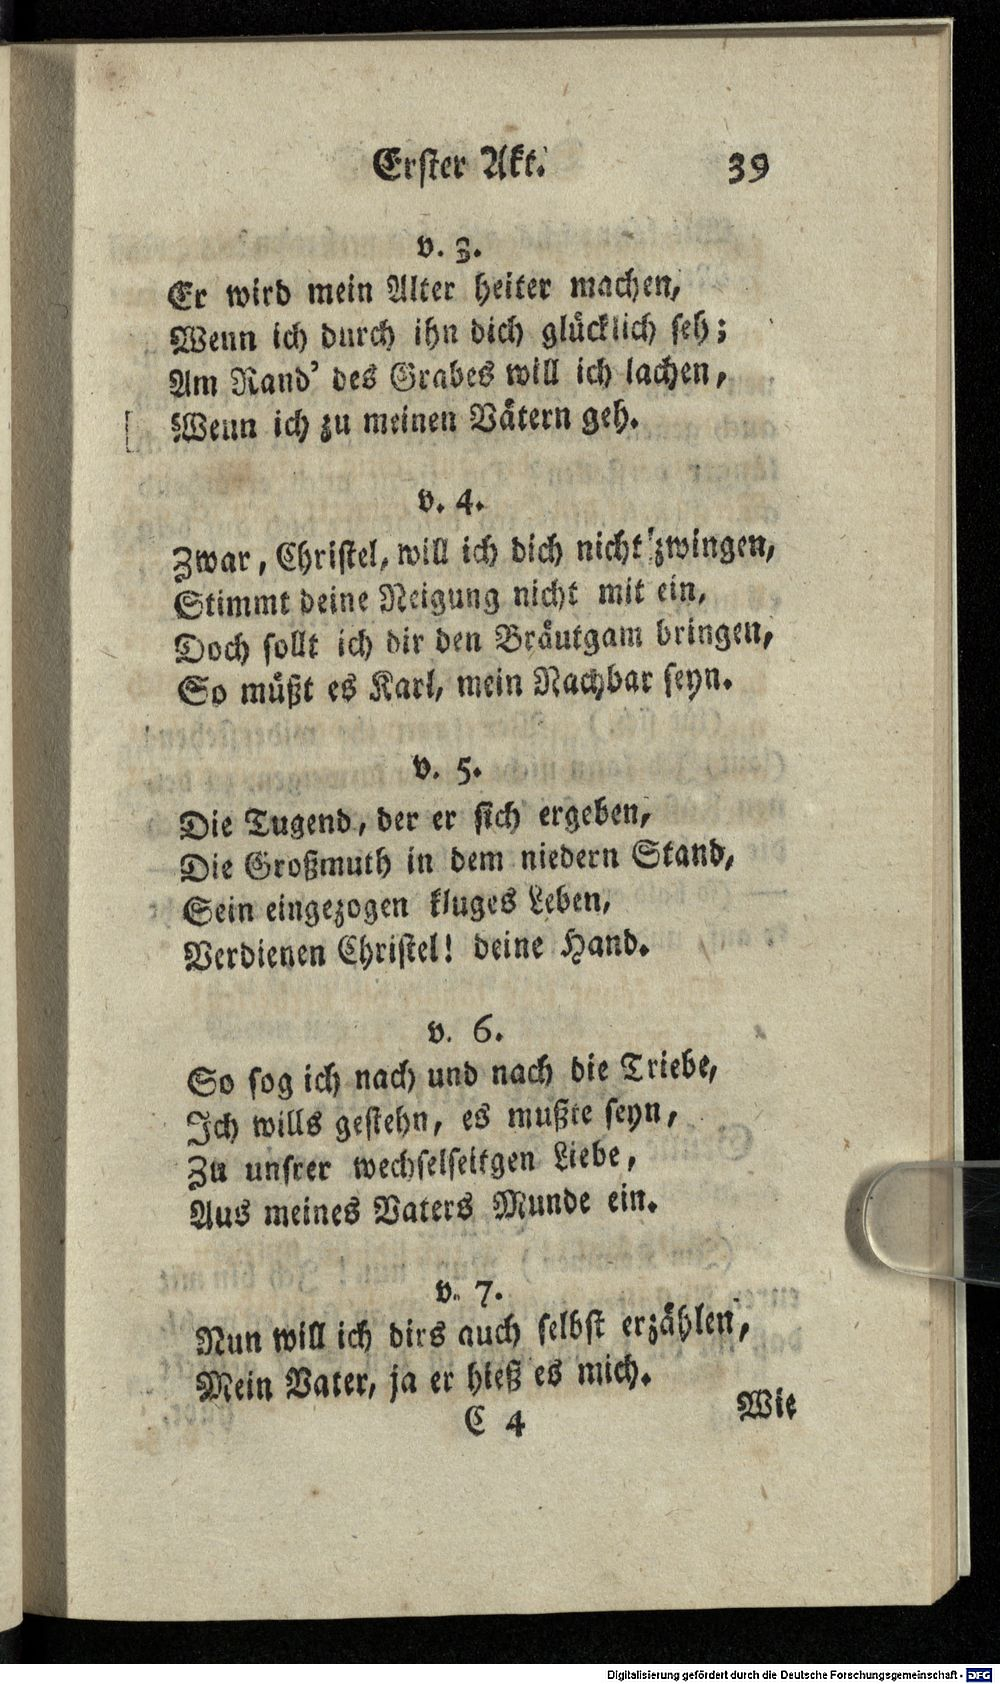 Erster Akt. 39
v. 3.
Er wird mein Alter heiter machen,
Wenn ich durch ihn dich glücklich seh;
Am Rand' des Grabes will ich lachen,
Wenn ich zu meinen Vätern geh.
v. 4.
Zwar, Christel, will ich dich nicht zwingen,
Stimmt deine Neigung nicht mit ein,
Doch sollt ich dir den Bräutgam bringen,
So müßt es Karl, mein Nachbar seyn.
v. 5.
Die Tugend, der er sich ergeben,
Die Großmuth in dem niedern Stand,
Sein eingezogen kluges Leben,
Verdienen Christel! deine Hand.
v. 6.
So sog ich nach und nach die Triebe,
Ich wills gestehn, es mußte seyn,
Zu unsrer wechselseitgen Liebe,
Aus meines Vaters Munde ein.
v. 7.
Nun will ich dirs auch selbst erzählen,
Mein Vater, ja er hieß es mich.
C 4 Wie
Digitalisierung gefördert durch die Deutsche Forschungsgemeinschaft - DFG